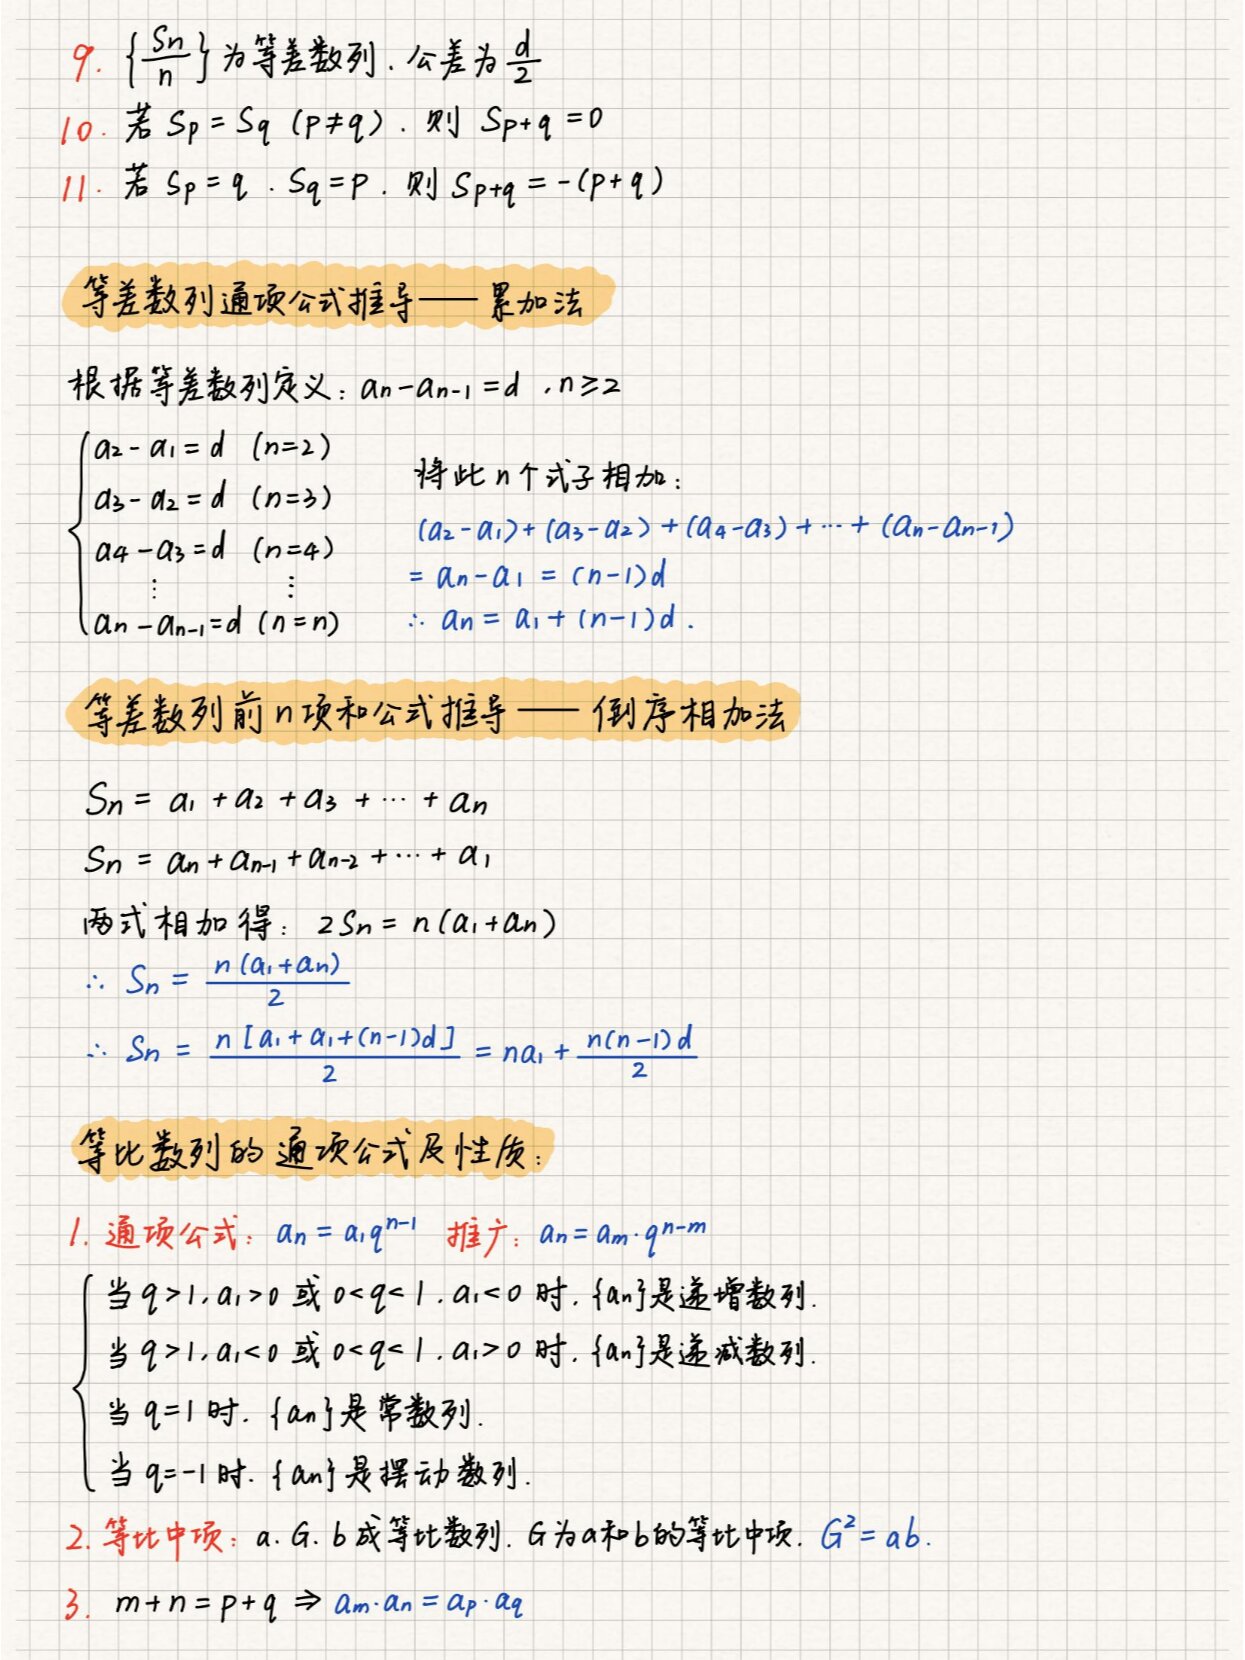 9. {Sn/n}为等差数列.公差为d/2
10. 若 Sp = Sq (p≠q). 则 Sp+q = 0
11. 若 Sp = q . Sq = p. 则 Sp+q = -(p+q)
等差数列通项公式推导——累加法
根据等差数列定义: an - an-1 = d , n≥2
a2 - a1 = d (n=2)
a3 - a2 = d (n=3)
a4 - a3 = d (n=4)
⋮ ⋮
an - an-1 = d (n=n)
将此n个式子相加:
(a2-a1)+(a3-a2)+(a4-a3)+…+(an-an-1)
= an - a1 = (n-1)d
∴ an = a1 + (n-1)d .
等差数列前n项和公式推导——倒序相加法
Sn = a1 + a2 + a3 + … + an
Sn = an + an-1 + an-2 + … + a1
两式相加得: 2Sn = n(a1+an)
∴ Sn = n(a1+an)/2
∴ Sn = n[a1+a1+(n-1)d]/2 = na1 + n(n-1)d/2
等比数列的通项公式及性质:
1. 通项公式: an = a1qⁿ⁻¹ 推广: an = am·qⁿ⁻ᵐ
当q>1, a1>0 或 0<q<1 . a1<0 时. {an}是递增数列.
当q>1, a1<0 或 0<q<1 . a1>0 时. {an}是递减数列.
当q=1时. {an}是常数列.
当q=-1时. {an}是摆动数列.
2. 等比中项: a. G. b成等比数列. G为a和b的等比中项. G²=ab.
3. m+n=p+q ⇒ am·an = ap·aq